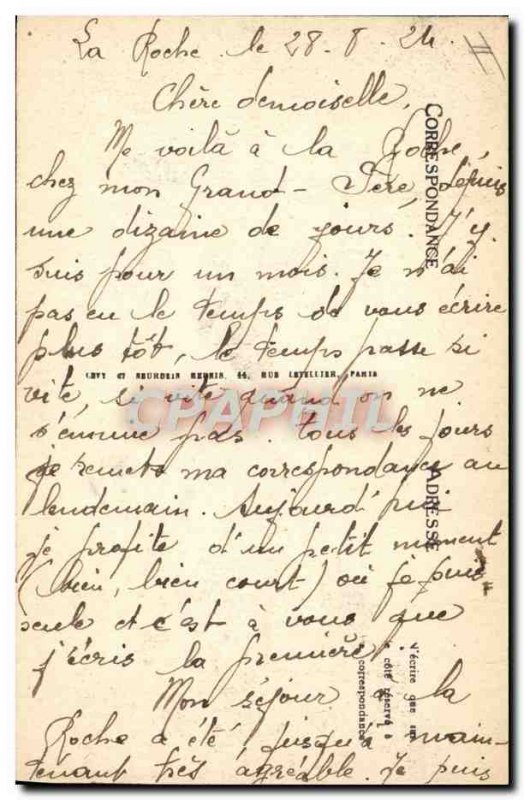 La Roche le 28-8-24. II
Chère demoiselle,
Me voilà à la Roche
chez mon Grand-Père, depuis
une dizaine de jours. J'y
suis pour un mois. Je n'ai
pas eu le temps de vous écrire
plus tôt, le temps passe si
vite, si vite quand on ne
s'ennuie pas. Tous les jours
je remets ma correspondance au
lendemain. Aujourd'hui
je profite d'un petit moment
(bien, bien court) où je suis
seule et c'est à vous que
j'écris la première
Mon séjour à la
Roche a été jusqu'à main-
tenant très agréable. Je puis
CORRESPONDANCE
ADRESSE
LEVY ET NEURDEIN REUNIS, 44, RUE LETELLIER, PARIS
N'écrire que
côté réservé à
correspondance
CPAPHIL